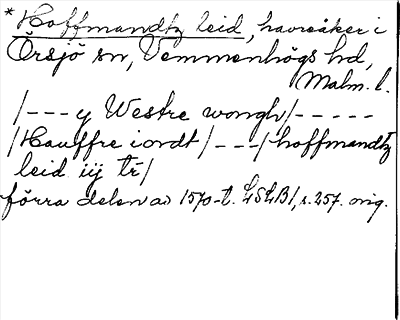 * Hoffmandtz leid, havreåker i
Örsjö sn, Vemmenhögs hd,
Malm. l.
/---y Westre wongh/-----
/Hauffre iordt/---/hoffmandtz
leid iij tr/
förra delen av 1570-t. LSLB1, s. 257. orig.